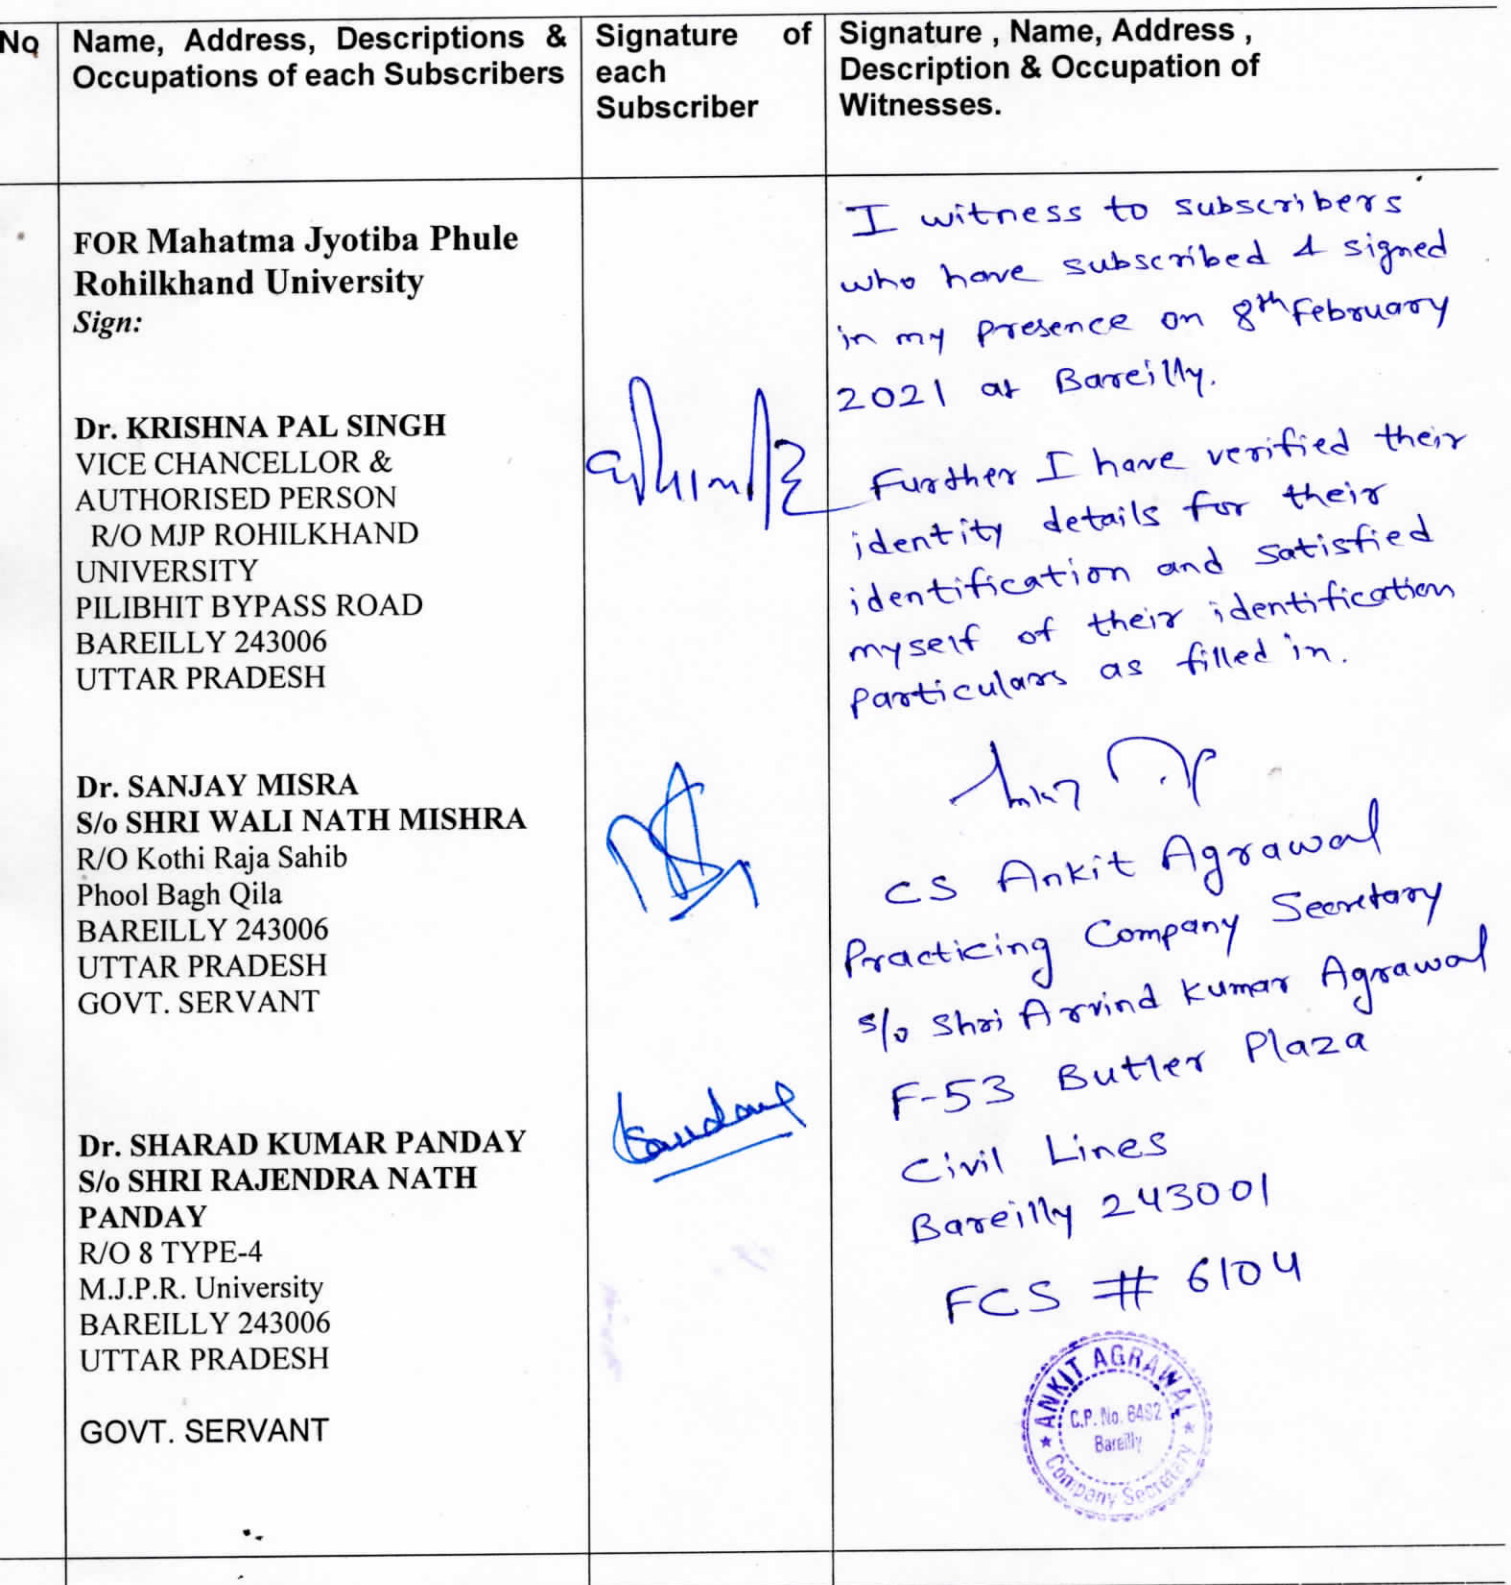 No
Name, Address, Descriptions &
Occupations of each Subscribers
Signature of
each
Subscriber
Signature , Name, Address ,
Description & Occupation of
Witnesses.
FOR Mahatma Jyotiba Phule
Rohilkhand University
Sign:
Dr. KRISHNA PAL SINGH
VICE CHANCELLOR &
AUTHORISED PERSON
R/O MJP ROHILKHAND
UNIVERSITY
PILIBHIT BYPASS ROAD
BAREILLY 243006
UTTAR PRADESH
Dr. SANJAY MISRA
S/o SHRI WALI NATH MISHRA
R/O Kothi Raja Sahib
Phool Bagh Qila
BAREILLY 243006
UTTAR PRADESH
GOVT. SERVANT
Dr. SHARAD KUMAR PANDAY
S/o SHRI RAJENDRA NATH
PANDAY
R/O 8 TYPE-4
M.J.P.R. University
BAREILLY 243006
UTTAR PRADESH
GOVT. SERVANT
I witness to subscribers
who have subscribed & signed
in my presence on 8th February
2021 at Bareilly.
Further I have verified their
identity details for their
identification and satisfied
myself of their identification
particulars as filled in.
CS Ankit Agrawal
Practicing Company Secretary
S/o Shri Arvind Kumar Agrawal
F-53 Butler Plaza
Civil Lines
Bareilly 243001
FCS # 6104
ANKIT AGRAWAL
C.P. No.
Bareilly
Company Secretary